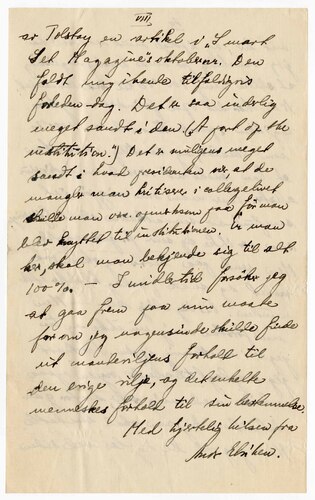 VIII
av Tolstoy en artikel i "Smart
Set Magazine's oktobernr. Den
faldt mig ihænde tilfældigvis
forleden-dag. Det er saa inderlig
meget sandt i den ("A part of the
institution.") Det er muligens meget
sandt i hvad presidenten sier, at de
mangler man kritiserer i collegelivet
skulle man være opmerksom paa før man
blev knyttet til institutionen. Er man
her, skal man bekjende sig til alt
100%. — Imidlertid forsøker jeg
at gaa frem paa min maate
forom jeg nogensinde skulde finde
ut mandeviljens forhold til
den evige vilje, og det enkelte
menneskes forhold til sin bestemmelse.
Med hjertelig hilsen fra